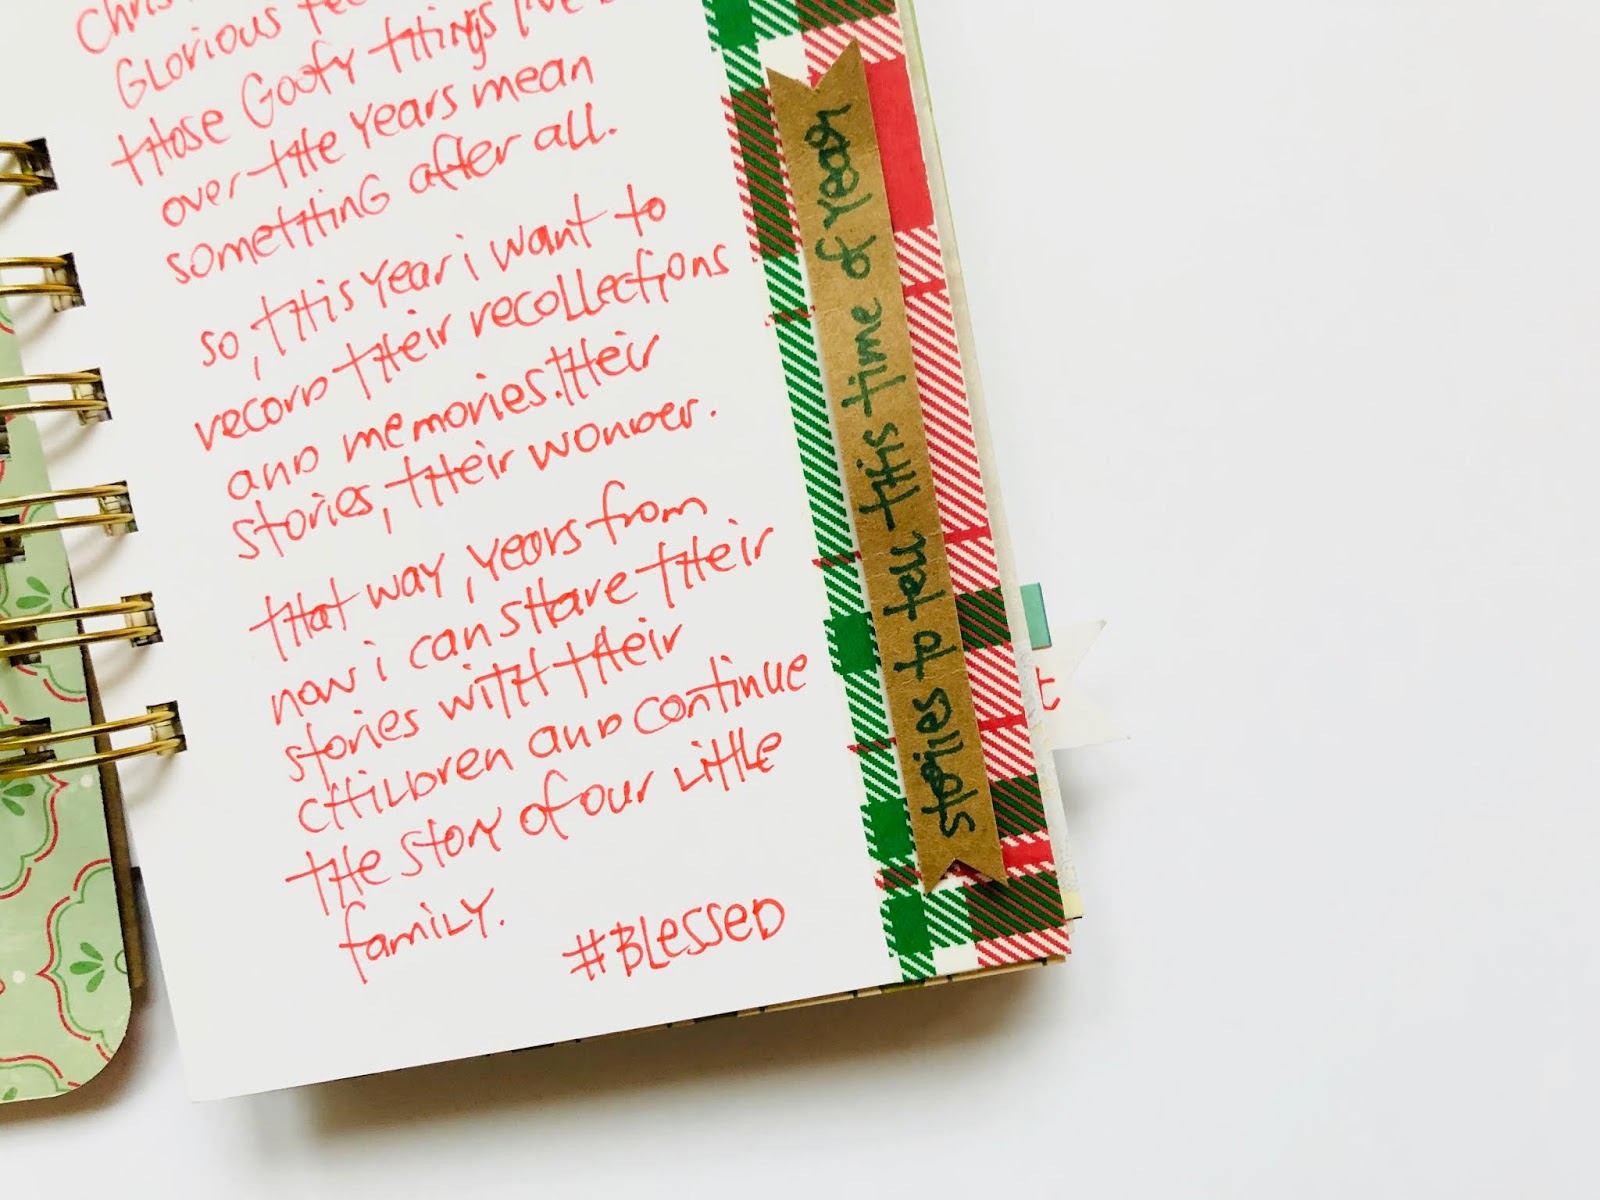 Glorious
those Goofy things I've
over the years mean
something after all.
so, this year i want to
record their recollections
and memories. their
stories, their wonder.
that way, years from
now i can share their
stories with their
children and continue
the story of our little
family.
#Blessed
stories to tell this time of year
t